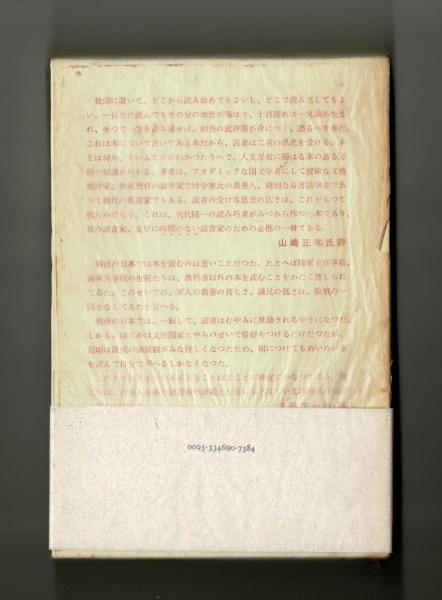 枕頭に置いて、どこから読み始めてもよいし、どこで読みさしてもよ
い。一日だけ読んでもその分の知恵が湧はり、十頁読めば一見識が生ま
れ、坐つて一巻を読み通せば、相当の批評眼が身につく、恐るべき本だ。
これは本について書いてある本だから、読者は二重の恩恵を受ける。本
とは何か、といふことがわかつたうへで、人文万般に関はる本の語る万
般の知識がわかる。著者は、アカデミックな国文学者にして俊敏な文藝
批評家、秋霜烈日の論争家で博学無比の教養人、周到なる書誌学者であ
つて稀代の蔵書家でもある。読者の受ける思恵の広さは、これをもつて
明らかだらう。これは、当代随一の読み巧者がみづから作つた本であり、
世の読書家、並びに時間のない読書家のための必携の一冊である。
山崎正和氏評
戦前の日本では本を読むのは悪いことだつた。たとへば陸軍士官学校、
海軍兵学校の生徒たちは、教科書以外の本を読むことをかたく禁じられ
てゐた。このせいでの、軍人の教養の貧しさ、識見の低さは、敗戦の一
因をなしてゐたと言へる。
戦後の日本では、一転して、読書はむやみに奨励されるやうになつた。
しかも、はじめは文化国家とやらのせいで恰好をつけるだけだつたが、
を読んで自分で考へるしかなくなつた。
0095-334690-7384